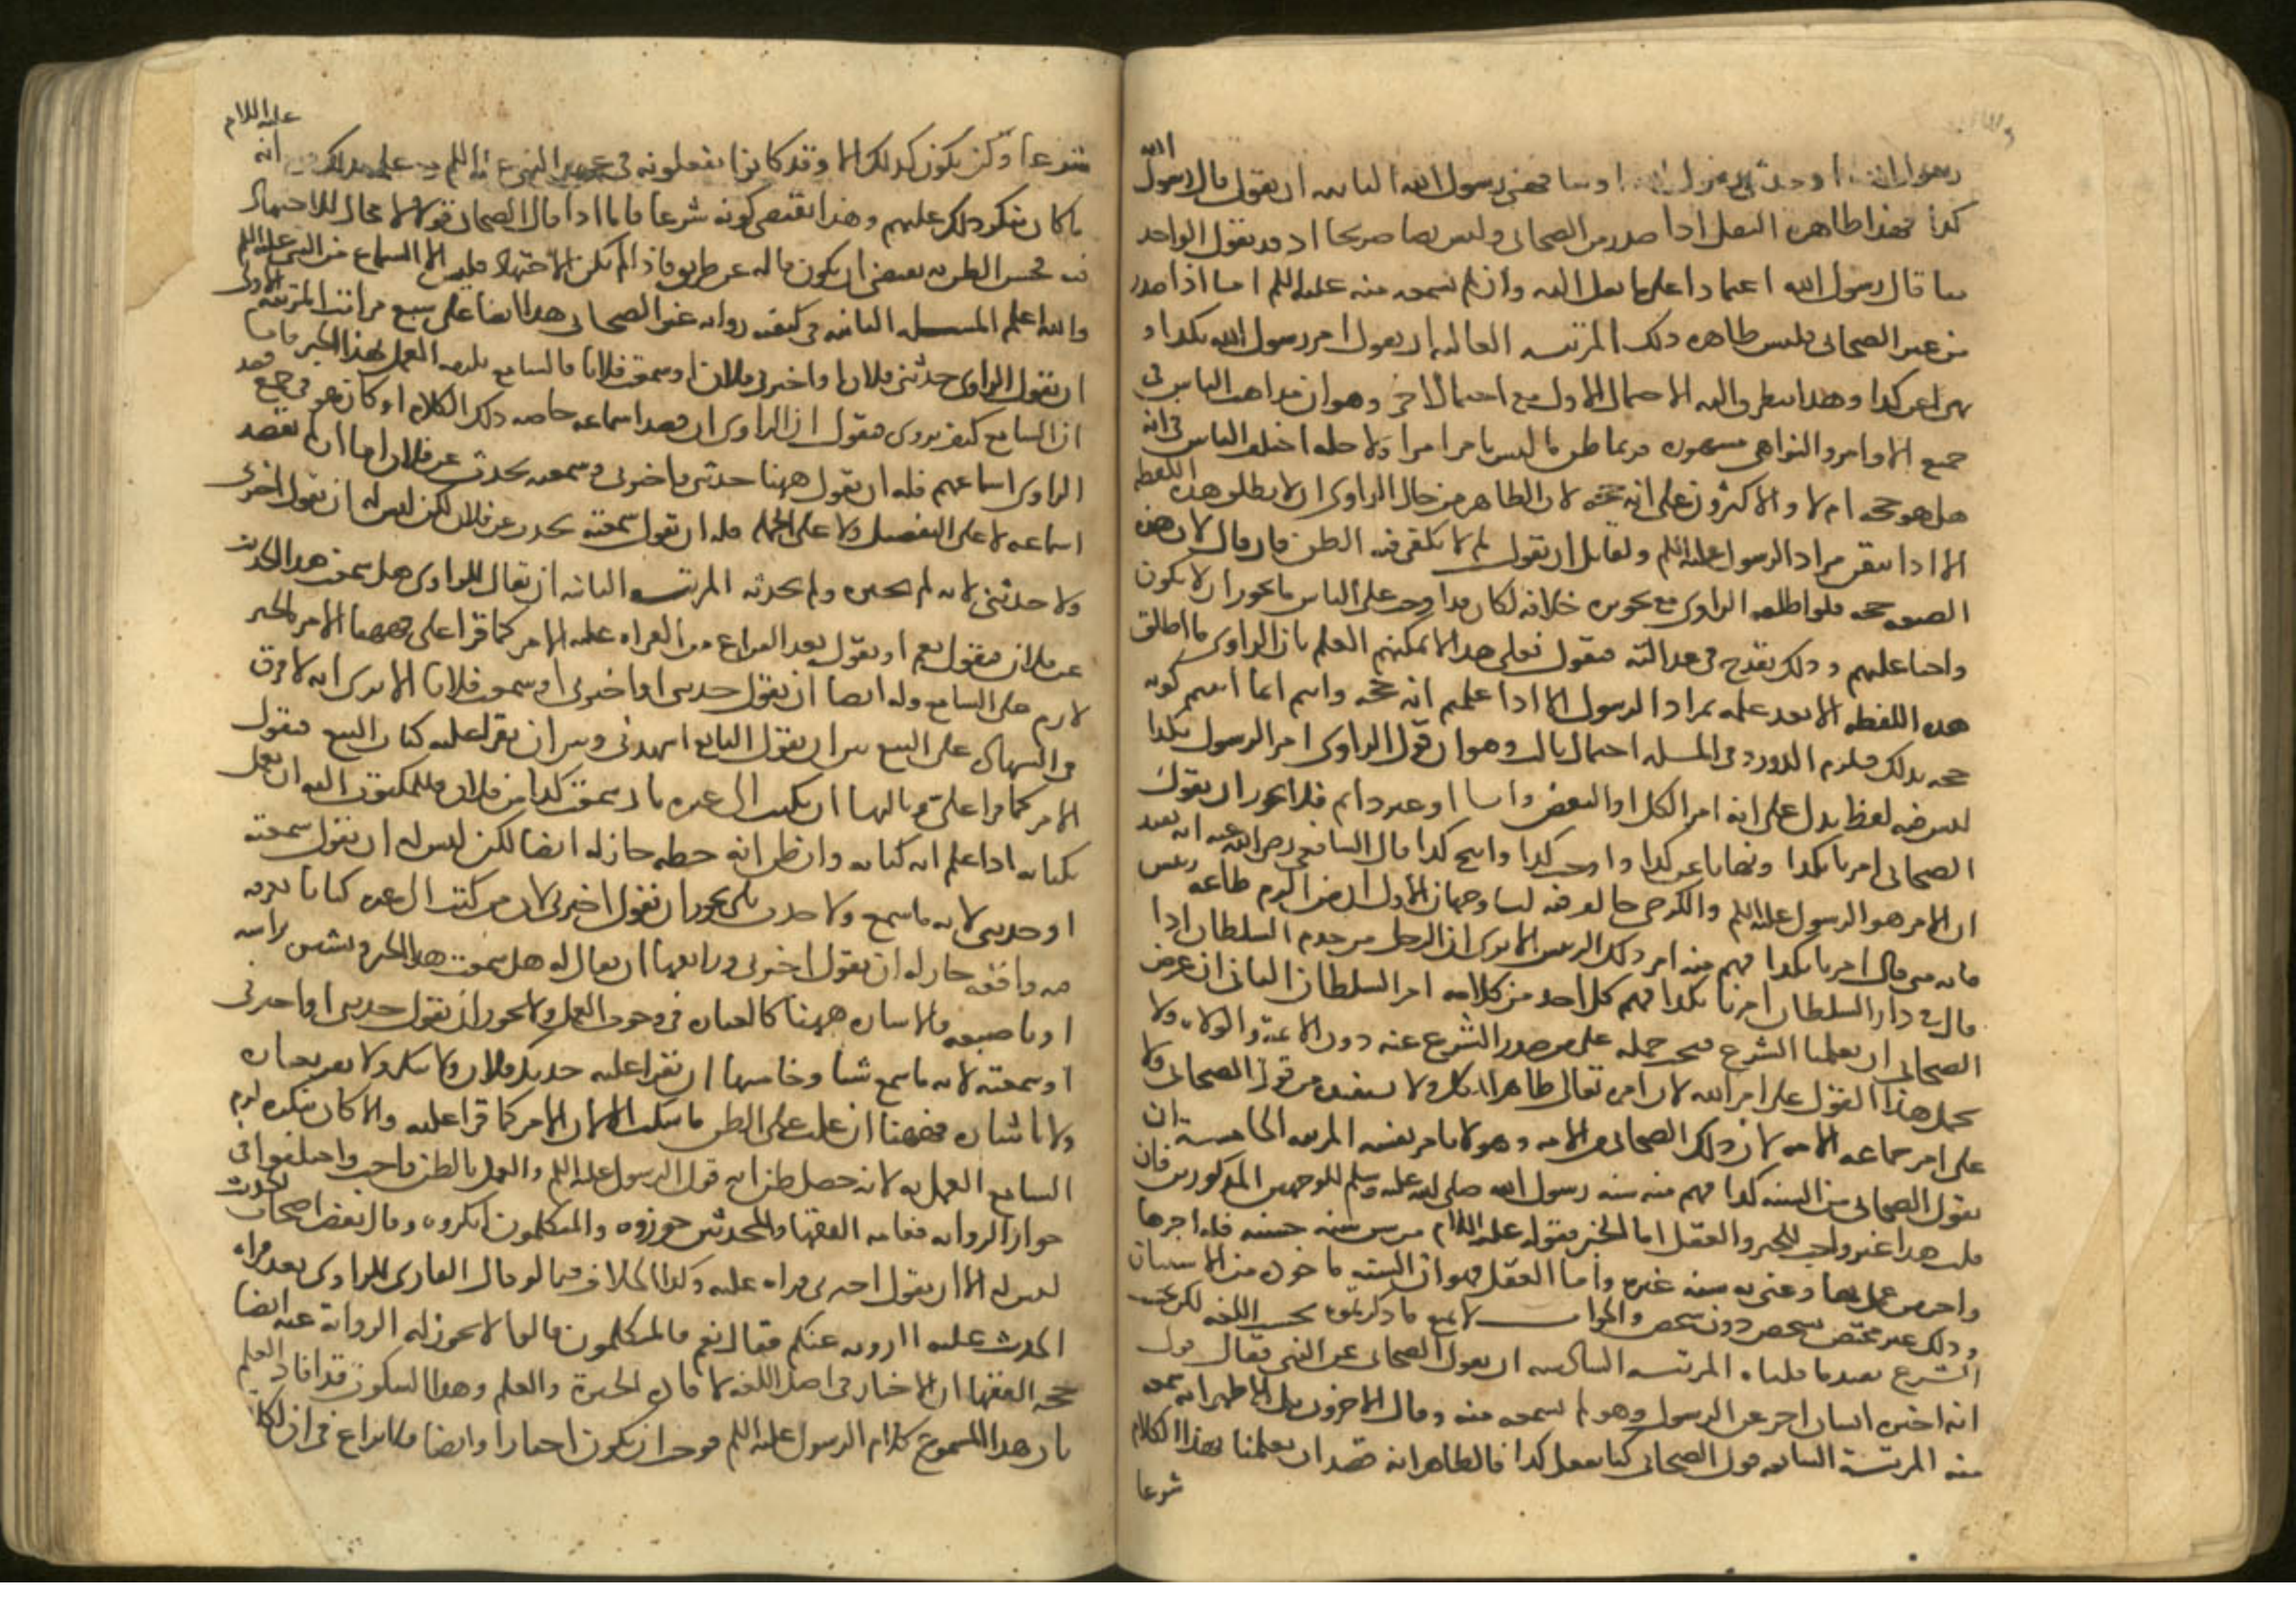 رسول الله او حدثني رسول الله او شافهني رسول الله الثانية ان يقول قال رسول الله
كذا فهذا ظاهره النقل اذا صدر من الصحابي وليس نصا صريحا اذ قد يقول الواحد
منا قال رسول الله اعتمادا على ما نقل اليه وان لم يسمعه منه عليه السلم اما اذا صدر
من غير الصحابي فليس ظاهره ذلك المرتبة الثالثة ان يقول امر رسول الله بكذا او
نهى عن كذا وهذا يتطرق اليه الاحتمال الاول مع احتمال اخر وهو ان مذاهب الناس في
جميع الاوامر والنواهي مشهورة فربما ظن ما ليس بامر امرا ولاجله اختلف الناس في انه
هل هو حجه ام لا والاكثرون على انه حجة لان الظاهر من حال الراوي ان لا يطلق هذه اللفظة
الا اذا تيقن مراد الرسول عليه السلم ولقايل ان يقول لم لا يكفي فيه الظن فان قال لان هذه
الصيغه حجه فلو اطلقه الراوي مع تجويزه خلافه لكان قد اوجب على الناس ما يجوز ان لا يكون
واجبا عليهم وذلك يقدح في عدالته فنقول فعلى هذا لا يمكنهم العلم بان الراوي ما اطلق
هذه اللفظه الا بعد علمه بمراد الرسول الا اذا علمتم انه حجة وانتم انما اثبتم كونه
حجه بذلك فيلزم الدور وفي المسله احتمال ثالث وهو ان قول الراوي امر الرسول بكذا
ليس فيه لفظ يدل على انه امر الكل او البعض دايما او غير دايم فلا يجوز ان يقول
الصحابي امرنا بكذا ونهانا عن كذا واوجب كذا وابيح كذا قال الشافعي رضي الله عنه انه يفيد
ان الامر هو الرسول عليه السلم والكرخي خالف فيه لنا وجهان الاول ان من التزم طاعة رئيس
فانه متى قال امرنا بكذا فهم منه امر ذلك الرئيس الا ترى ان الرجل من خدم السلطان اذا
قال في دار السلطان امرنا بكذا فهم كل احد من كلامه امر السلطان الثاني ان غرض
الصحابي ان يعلمنا الشرع فيجب حمله على من صدر الشرع عنه دون الائمة والولاة ولا
يحمل هذا القول على امر الله لان امره تعالى ظاهر للكل ولا يستفيده من قول الصحابي ولا
على امر جماعه الامه لان ذلك الصحابي من الامه وهو لا يامر نفسه المرتبه الخامسة ان
يقول الصحابي من السنه كذا فهم منه سنه رسول الله صلى الله عليه وسلم للوجهين المذكورين فان
قلت هذا غير واجب للخبر والعقل اما الخبر فقوله عليه السلام من سن سنه حسنه فله اجرها
واجر من عمل بها وعنى به سنه غيره واما العقل فهو ان السنه ماخوذه من الاستنان
وذلك غير مختص بشخص دون شخص والجواب لا نمنع ما ذكرتموه بحسب اللغه لكن بحسب
الشرع يفيد ما قلناه المرتبه السادسه ان يقول الصحابي عن النبي فقال قوم
انه اخبره انسان اخر عن الرسول وهو لم يسمعه منه وقال الاخرون بل الاظهر انه سمعه
منه المرتبة السابعه قول الصحابي كنا نفعل كذا فالظاهر انه قصد ان يعلمنا بهذا الكلام
شرعا
شرعا ولن يكون كذلك الا وقد كانوا يفعلونه في عهد النبي عليه السلم مع علمه بذلك ومع انه عليه السلام
ما كان ينكر ذلك عليهم وهذا يقتضي كونه شرعا فاما اذا قال الصحابي قولا لا مجال للاجتهاد
فيه فحسن الظن به يقتضي ان يكون قاله عن طريق فاذا لم يكن الاجتهاد فليس الا السماع من النبي عليه السلم
والله اعلم المسله الثانيه في كيفيه روايه غير الصحابي هذا ايضا على سبع مراتب المرتبه الاولى
ان يقول الراوي حدثني فلان او اخبرني فلان او سمعت فلانا فالسامع يلزمه العمل بهذا الخبر فاما
ان السامع كيف يروي فنقول ان الراوي ان قصد اسماعه خاصه ذلك الكلام او كان هو في جمع قصد
الراوي اسماعهم فله ان يقول ههنا حدثني واخبرني وسمعته يحدث عن فلان اما ان لم يقصد
اسماعه لا على التفصيل ولا على الجمله فله ان يقول سمعته يحدث عن فلان لكن ليس له ان يقول اخبرني
ولا حدثني لانه لم يخبره ولم يحدثه المرتبه الثانيه ان يقال للراوي هل سمعت هذا الحديث
عن فلان فيقول نعم او يقول بعد الفراغ من القراءه عليه الامر كما قرا علي فههنا الامر بالخبر
لازم على السامع وله ايضا ان يقول حدثني او اخبرني او سمعت فلانا الا ترى انه لا فرق
في الشهاده على البيع بين ان يقول البايع اشهدني وبين ان يقرا عليه كتاب البيع فيقول
الامر كما قرا علي وثالثها ان يكتب الى غيره باني سمعت كذا من فلان فللمكتوب اليه ان يعمل
بكتابه اذا علم انه كتابه وان ظن انه خطه جاز له ايضا لكن ليس له ان يقول سمعته
او حدثني لانه ما سمع ولا حدث بل يجوز ان يقول اخبرني لان من كتب الى غيره كتابا يعرفه
فيه واقعه جاز له ان يقول اخبرني ورابعها ان يقال له هل سمعت هذا الخبر فيشير براسه
او باصبعه فالاشاره ههنا كالعباره في وجوب العمل ولا يجوز ان يقول حدثني او اخبرني
او سمعته لانه ما سمع شيا وخامسها ان يقرا عليه حديثك فلان ولا ينكر ولا يقر بعباره
ولا باشاره فههنا ان غلب على الظن ما سكت الا لان الامر كما قرا عليه والا كان ينكره لزم
السامع العمل به لانه حصل ظن انه قول الرسول عليه السلم والعمل بالظن واجب واختلفوا في
جواز الروايه فعامه الفقها والمحدثين جوزوه والمتكلمون انكروه وقال بعض اصحاب الحديث
ليس له الا ان يقول اخبرني قراءه عليه وكذا الخلاف فيما لو قال القاري للراوي بعد قراءه
الحديث عليه اارويه عنكم فقال نعم فالمتكلمون قالوا لا يجوز له الرواية عنه ايضا
حجه الفقها ان الاخبار في اصل اللغه لافاده الخبرة والعلم وهذا السكوت قد افاد العلم
بان هذا المسموع كلام الرسول عليه السلم فوجب ان يكون اخبارا وايضا فلا نزاع في ان لكل